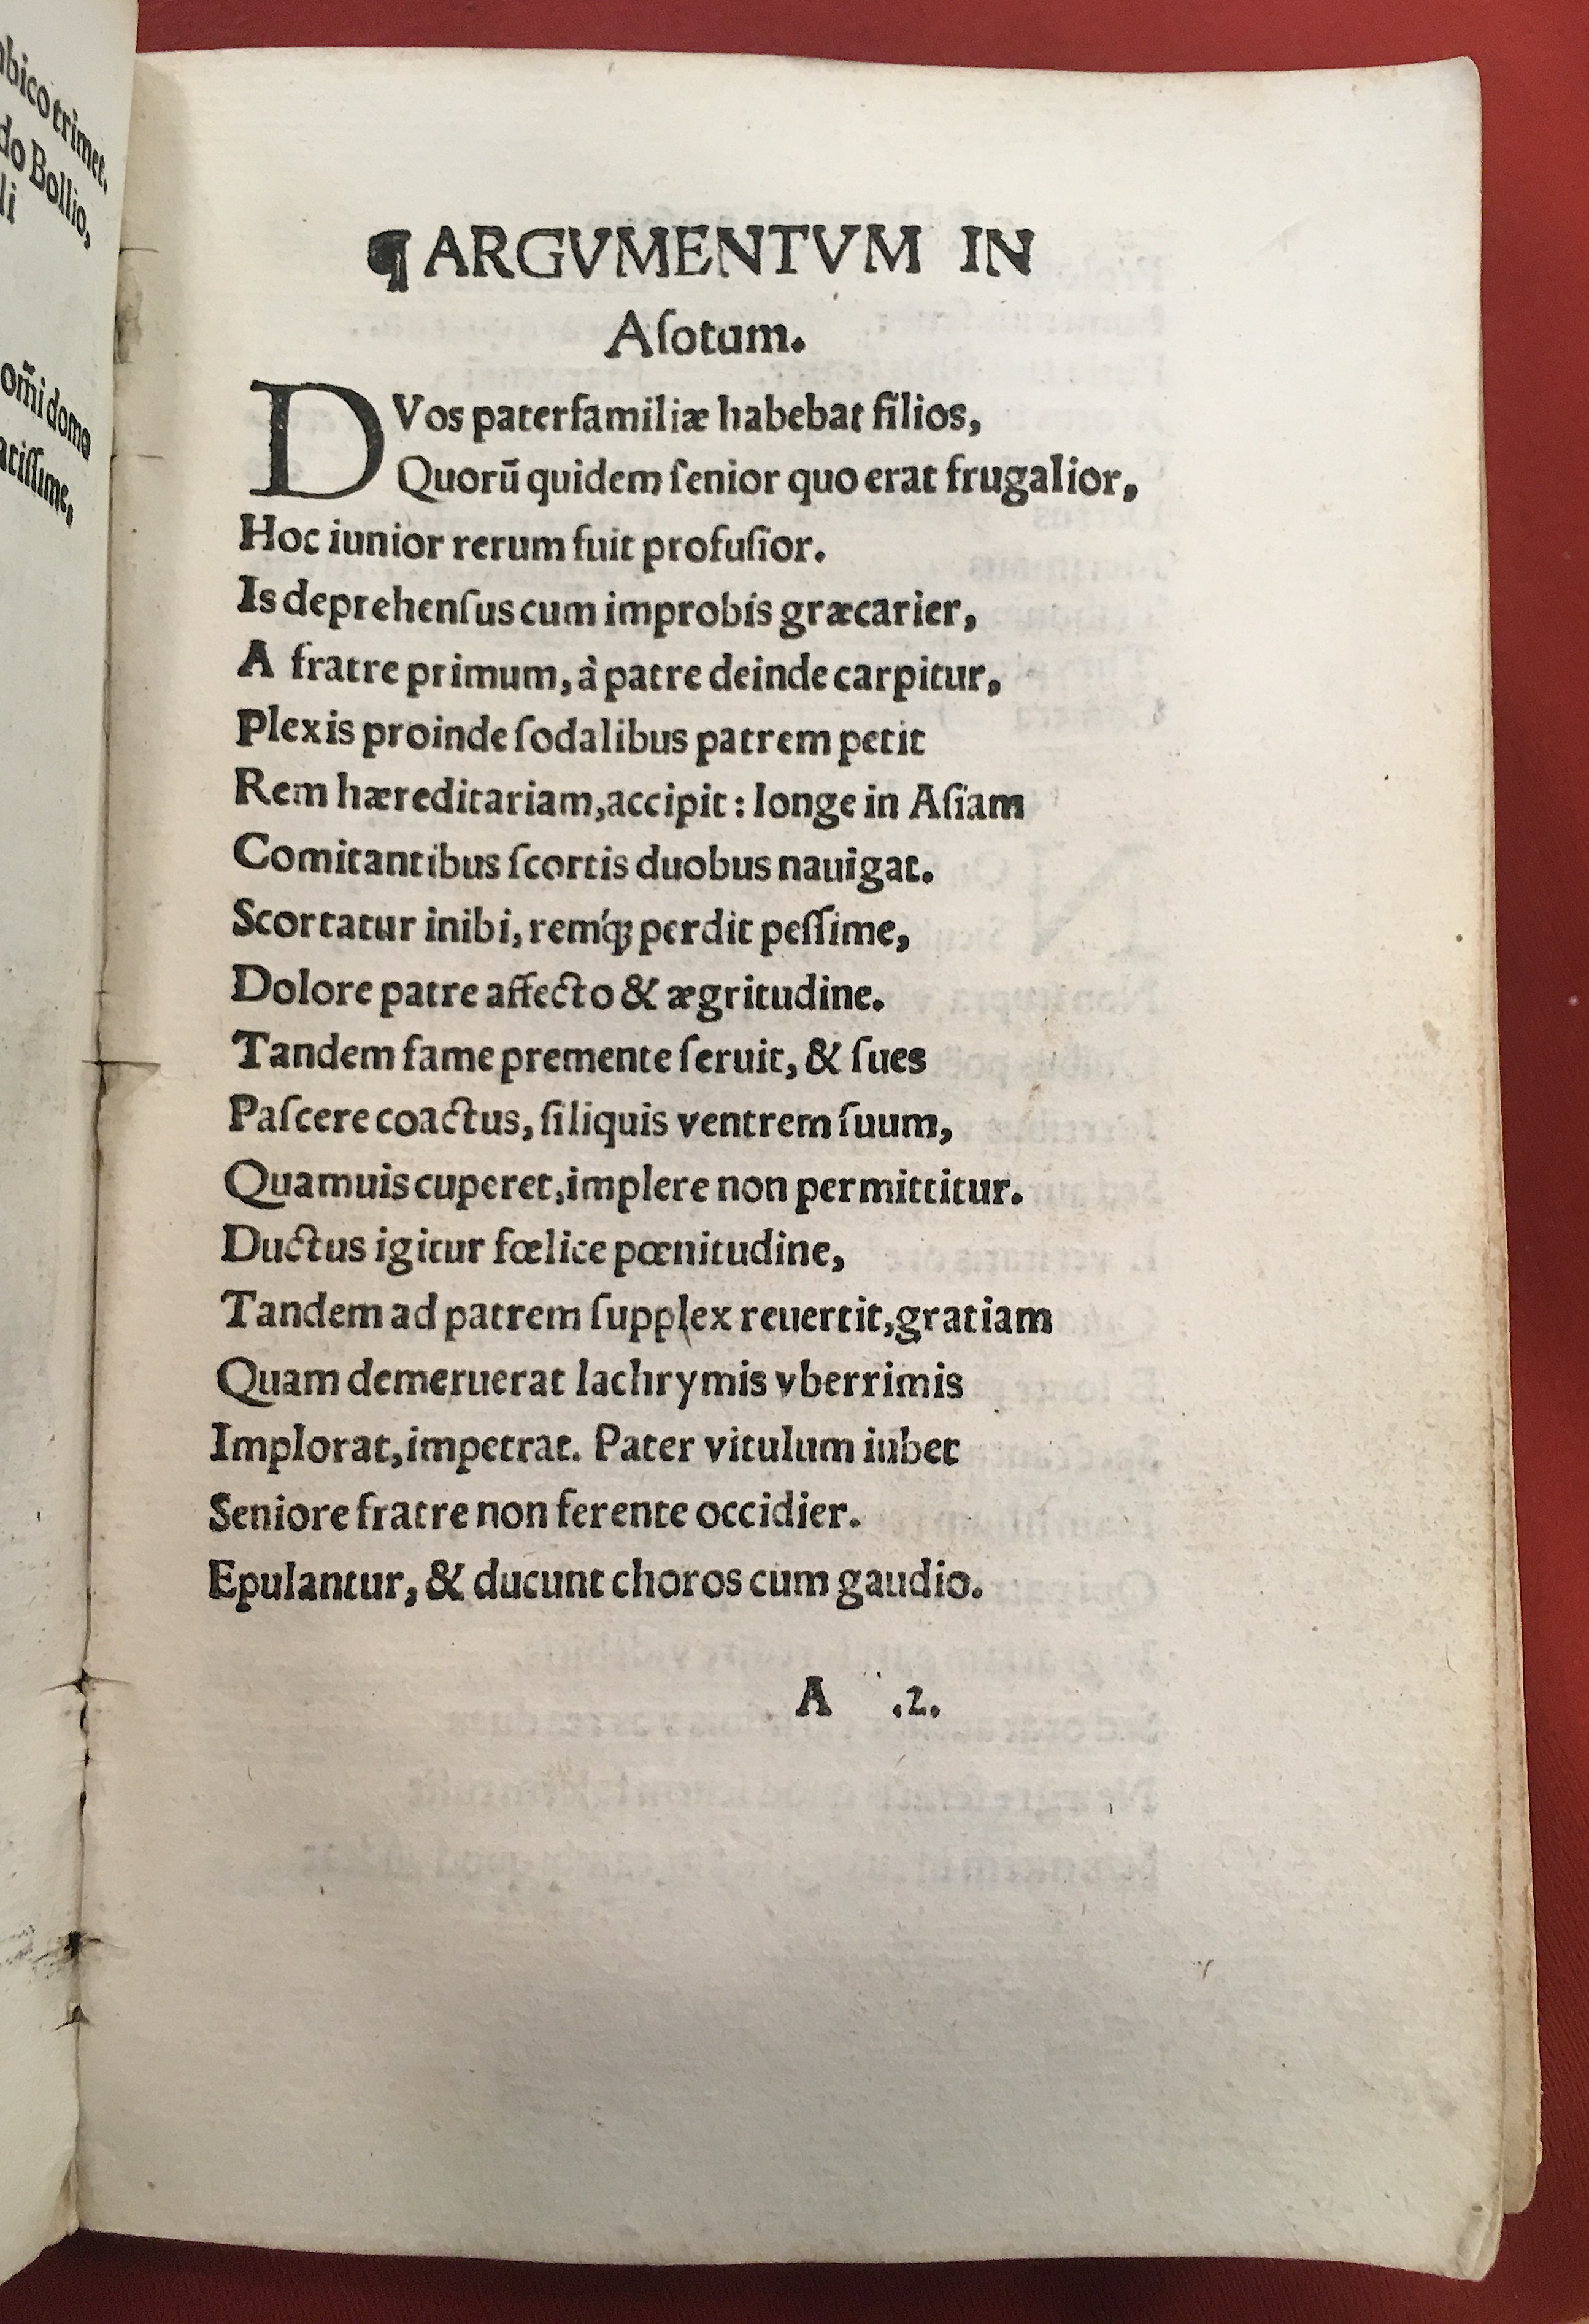 bico trimet.
do Bollio,
li
om̃i domo
atiſſime,
¶ ARGVMENTVM IN
Aſotum.
DVos paterfamiliæ habebat filios,
Quorū quidem ſenior quo erat frugalior,
Hoc iunior rerum fuit profuſior.
Is deprehenſus cum improbis græcarier,
A fratre primum, à patre deinde carpitur,
Plexis proinde ſodalibus patrem petit
Rem hæreditariam,accipit: longe in Aſiam
Comitantibus ſcortis duobus nauigat.
Scortatur inibi, remq́ꝫ perdit peſſime,
Dolore patre affecto & ægritudine.
Tandem fame premente ſeruit, & ſues
Paſcere coactus, ſiliquis ventrem ſuum,
Quamuis cuperet,implere non permittitur.
Ductus igitur fœlice pœnitudine,
Tandem ad patrem ſupplex reuertit,gratiam
Quam demeruerat lachrymis vberrimis
Implorat,impetrat. Pater vitulum iubet
Seniore fratre non ferente occidier.
Epulantur, & ducunt choros cum gaudio.
A .2.